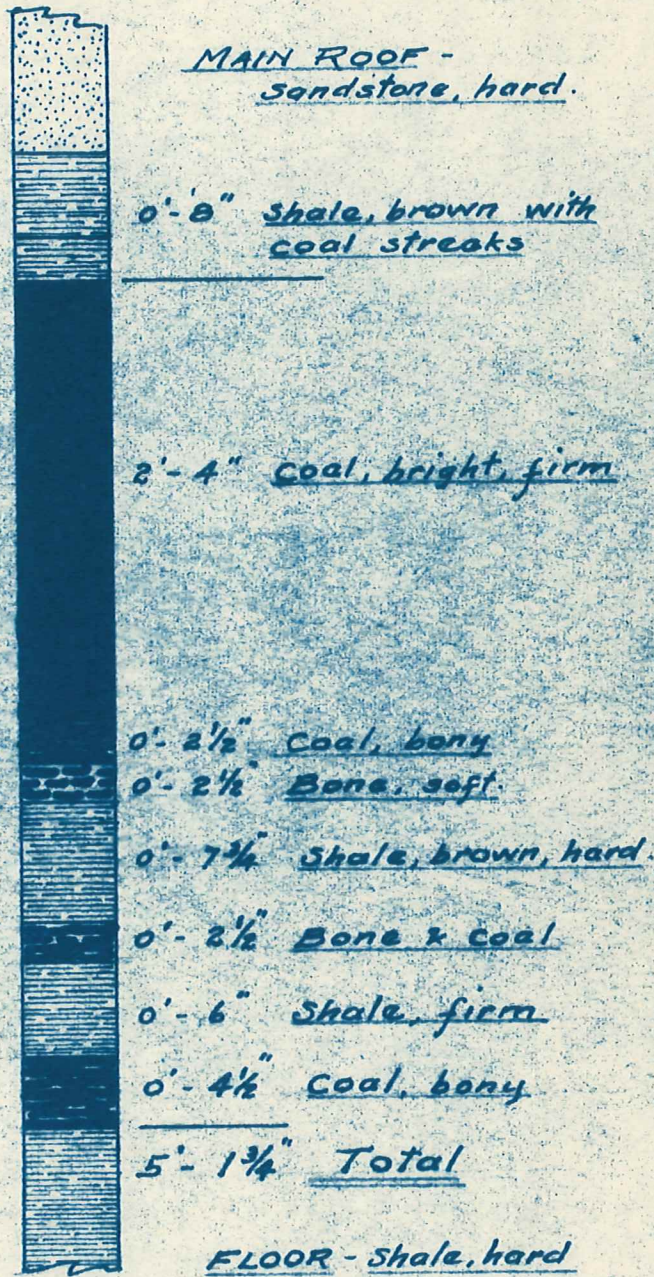 MAIN ROOF -
Sandstone, hard.
0'- 8" Shale, brown with
coal streaks
2'- 4" Coal, bright, firm
0'- 2½" Coal, bony
0'- 2½" Bone, soft.
0'- 7¾" Shale, brown, hard.
0'- 2½" Bone & Coal
0'- 6" Shale, firm
0'- 4½" Coal, bony
5'- 1¾" Total
FLOOR - Shale, hard